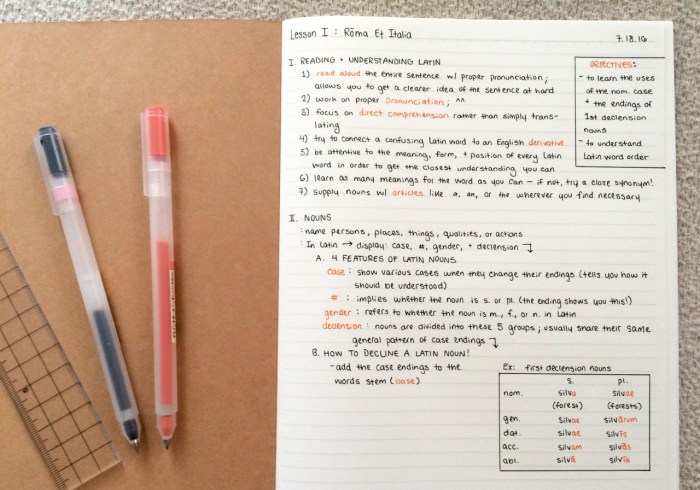 Lesson I : Rōma Et Italia
7.18.16
I. READING + UNDERSTANDING LATIN
1) read aloud the entire sentence w/ proper pronunciation;
allows you to get a clearer idea of the sentence at hand
2) work on proper pronunciation; ^^
3) focus on direct comprehension rather than simply trans-
lating
4) try to connect a confusing Latin word to an English derivative
5) be attentive to the meaning, form, + position of every Latin
word in order to get the closest understanding you can
6) learn as many meanings for the word as you can – if not, try a close synonym!
7) supply nouns w/ articles like a, an, or the wherever you find necessary
OBJECTIVES:
- to learn the uses
of the nom. case
+ the endings of
1st declension
nouns
- to understand
Latin word order
II. NOUNS
: name persons, places, things, qualities, or actions
: In Latin → display: case, #, gender, + declension ↴
A. 4 FEATURES OF LATIN NOUNS
case : show various cases when they change their endings (tells you how it
should be understood)
# : implies whether the noun is s. or pl. (the ending shows you this!)
gender : refers to whether the noun is m., f., or n. in Latin
declension : nouns are divided into these 5 groups; usually share their same
general pattern of case endings ↴
B. HOW TO DECLINE A LATIN NOUN!
- add the case endings to the
words stem (base)
Ex: first declension nouns
s. pl.
nom. silva silvae
(forest) (forests)
gen. silvae silvārum
dat. silvae silvīs
acc. silvam silvās
abl. silvā silvīs